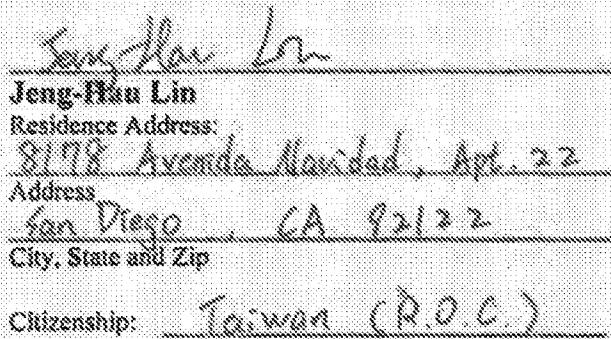 Jeng-Hau Lin
Jeng-Hau Lin
Residence Address:
8178 Avenida Navidad, Apt. 22
Address
San Diego, CA 92122
City, State and Zip
Citizenship: Taiwan (R.O.C.)